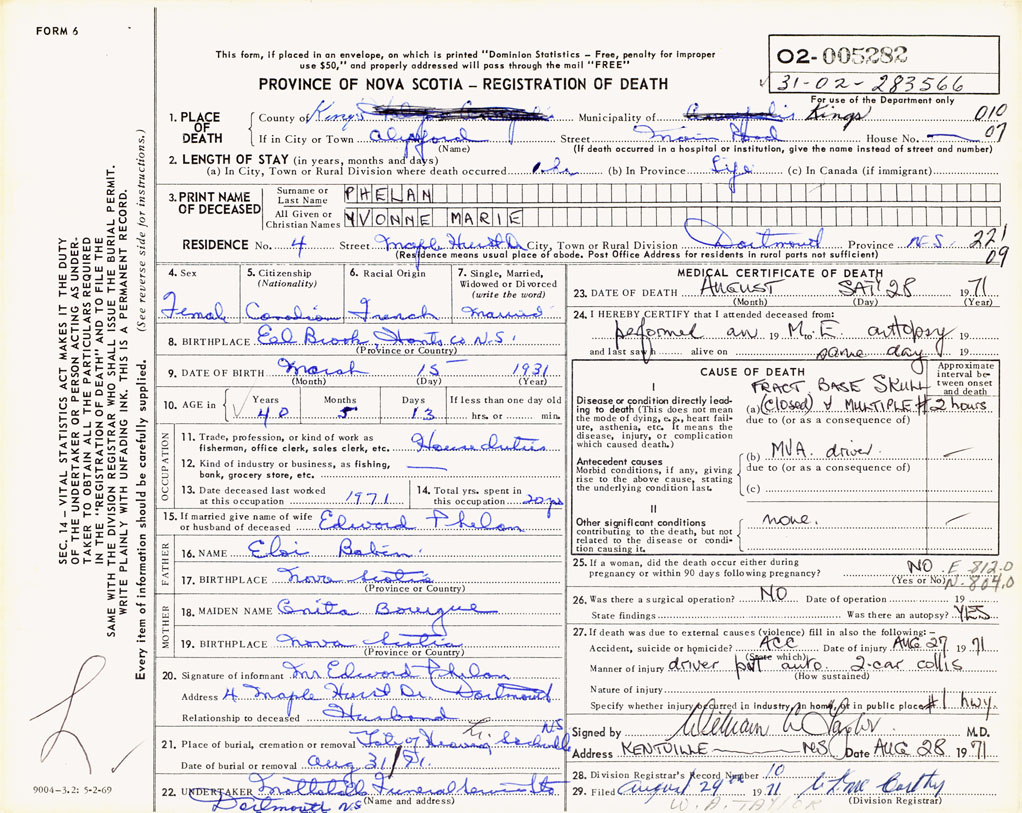 FORM 6
This form, if placed in an envelope, on which is printed "Dominion Statistics – Free, penalty for improper
use $50," and properly addressed will pass through the mail "FREE"
PROVINCE OF NOVA SCOTIA – REGISTRATION OF DEATH
02-005282
31-02-283566
For use of the Department only
1. PLACE OF DEATH
County of Kings Municipality of Kings 010
If in City or Town Street Main Road House No. 07
(Name) (If death occurred in a hospital or institution, give the name instead of street and number)
2. LENGTH OF STAY (in years, months and days)
(a) In City, Town or Rural Division where death occurred (b) In Province Life (c) In Canada (if immigrant)
3. PRINT NAME OF DECEASED
Surname or Last Name PHELAN
All Given or Christian Names YVONNE MARIE
RESIDENCE No. 4 Street Maple Hurst Dr City, Town or Rural Division Dartmouth Province N.S. 221
09
(Residence means usual place of abode. Post Office Address for residents in rural parts not sufficient)
4. Sex Female
5. Citizenship (Nationality) Canadian
6. Racial Origin French
7. Single, Married, Widowed or Divorced (write the word) Married
8. BIRTHPLACE Eel Brook, Hants Co N.S.
(Province or Country)
9. DATE OF BIRTH March 15 1931
(Month) (Day) (Year)
10. AGE in Years 40 Months 5 Days 13 If less than one day old hrs. or min.
OCCUPATION
11. Trade, profession, or kind of work as fisherman, office clerk, sales clerk, etc. House duties
12. Kind of industry or business, as fishing, bank, grocery store, etc.
13. Date deceased last worked at this occupation 1971
14. Total yrs. spent in this occupation 20 yrs
15. If married give name of wife or husband of deceased Edward Phelan
FATHER
16. NAME Eloi Babin
17. BIRTHPLACE Nova Scotia
(Province or Country)
MOTHER
18. MAIDEN NAME Anita Bourque
19. BIRTHPLACE Nova Scotia
(Province or Country)
20. Signature of informant Mr Edward Phelan
Address 4 Maple Hurst Dr. Dartmouth N.S
Relationship to deceased Husband
21. Place of burial, cremation or removal Gate of Heaven Sackville
Date of burial or removal Aug 31/71
22. UNDERTAKER Funeral Service
Dartmouth NS
(Name and address)
MEDICAL CERTIFICATE OF DEATH
23. DATE OF DEATH AUGUST SAT 28 1971
(Month) (Day) (Year)
24. I HEREBY CERTIFY that I attended deceased from:
performed an 19 M.E. to autopsy 19
and last saw h alive on same day 19
CAUSE OF DEATH
Approximate interval between onset and death
I
Disease or condition directly leading to death (This does not mean the mode of dying, e.g., heart failure, asthenia, etc. It means the disease, injury, or complication which caused death.)
FRACT BASE SKULL
(a) (Closed) MULTIPLE # 2 hours
due to (or as a consequence of)
Antecedent causes
Morbid conditions, if any, giving rise to the above cause, stating the underlying condition last.
(b) MVA. driver
due to (or as a consequence of)
(c)
II
Other significant conditions
contributing to the death, but not related to the disease or condition causing it.
none.
25. If a woman, did the death occur either during pregnancy or within 90 days following pregnancy? NO
(Yes or No)
E 812.0
N. 804.0
26. Was there a surgical operation? NO Date of operation 19
State findings Was there an autopsy? YES
27. If death was due to external causes (violence) fill in also the following: –
Accident, suicide or homicide? ACC Date of injury AUG 27 1971
(State which)
Manner of injury driver auto. 2-car collis
(How sustained)
Nature of injury
Specify whether injury occurred in industry, in home, or in public place #1 hwy.
Signed by William A Taylor M.D.
Address KENTVILLE NS Date AUG 28 1971
28. Division Registrar's Record Number 10
29. Filed August 29th 1971
(Division Registrar)
W. A. TAYLOR
SEC. 14 – VITAL STATISTICS ACT MAKES IT THE DUTY
OF THE UNDERTAKER OR PERSON ACTING AS UNDER-
TAKER TO OBTAIN ALL THE PARTICULARS REQUIRED
IN THE "REGISTRATION OF DEATH" AND TO FILE THE
SAME WITH THE DIVISION REGISTRAR WHO SHALL ISSUE THE BURIAL PERMIT.
WRITE PLAINLY WITH UNFADING INK. THIS IS A PERMANENT RECORD.
Every item of information should be carefully supplied. (See reverse side for instructions.)
9004-3.2: 5-2-69